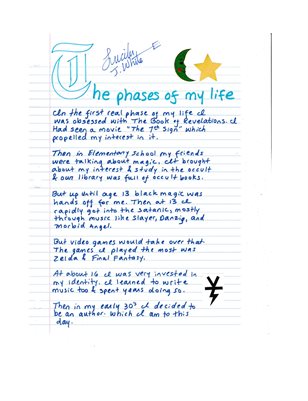 The phases of my life
In the first real phase of my life I
was obsessed with The Book of Revelations. I
Had seen a movie "The 7th Sign" which
propelled my interest in it.
Then in Elementary school my friends
were talking about magic. It brought
about my interest & study in the occult
& our library was full of occult books.
But up until age 13 black magic was
hands off for me. Then at 13 I
rapidly got into the satanic, mostly
through music like Slayer, Danzig, and
Morbid Angel.
But video games would take over that.
The games I played the most was
Zelda & Final Fantasy.
At about 16 I was very invested in
my identity. I learned to write
music too & spent years doing so.
Then in my early 30's I decided to
be an author. Which I am to this
day.